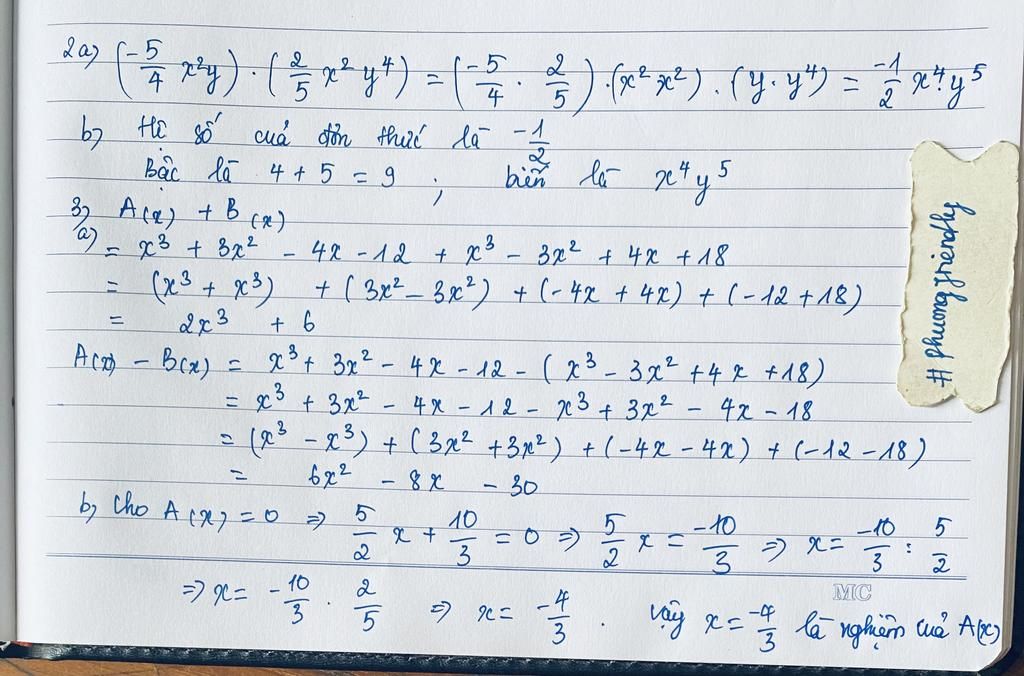 2a) (-5/4 x²y) · (2/5 x² y⁴) = (-5/4 · 2/5) · (x² x²) · (y · y⁴) = -1/2 x⁴ y⁵
b) Hệ số của đơn thức là -1/2
Bậc là 4 + 5 = 9 ; biến là x⁴y⁵
3) A(x) + B(x)
a) = x³ + 3x² - 4x - 12 + x³ - 3x² + 4x + 18
= (x³ + x³) + (3x² - 3x²) + (-4x + 4x) + (-12 + 18)
= 2x³ + 6
A(x) - B(x) = x³ + 3x² - 4x - 12 - (x³ - 3x² + 4x + 18)
= x³ + 3x² - 4x - 12 - x³ + 3x² - 4x - 18
= (x³ - x³) + (3x² + 3x²) + (-4x - 4x) + (-12 - 18)
= 6x² - 8x - 30
b) Cho A(x) = 0 ⇒ 5/2 x + 10/3 = 0 ⇒ 5/2 x = -10/3 ⇒ x = -10/3 : 5/2
⇒ x = -10/3 · 2/5 ⇒ x = -4/3 . Vậy x = -4/3 là nghiệm của A(x)
MC
#phuongfriendly